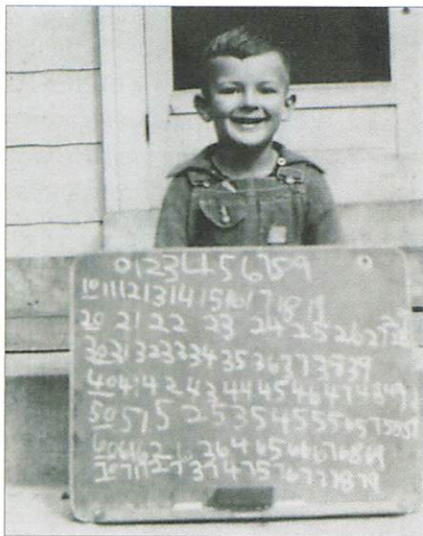 0123456789
10 11 12 13 14 15 16 17 18 19
20 21 22 23 24 25 26 27 28 29
30 31 32 33 34 35 36 37 38 39
40 41 42 43 44 45 46 47 48 49
50 51 52 53 54 55 56 57 58
60 61 62 64 65 66 67 68 69
70 71 72 73 74 75 76 77 78 79